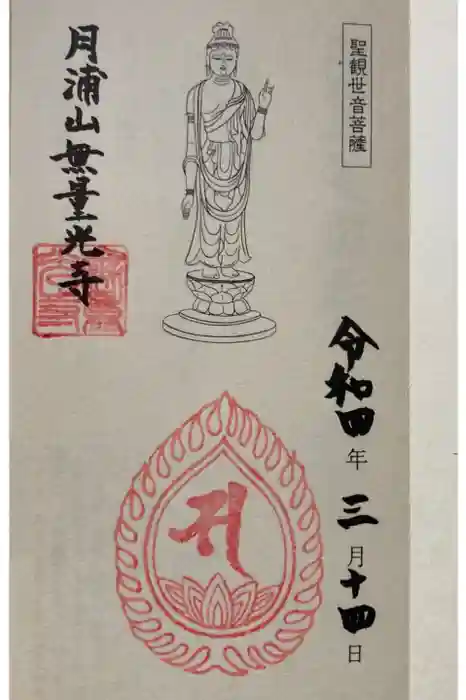 聖観世音菩薩
令和四年三月十四日
月浦山無量光寺